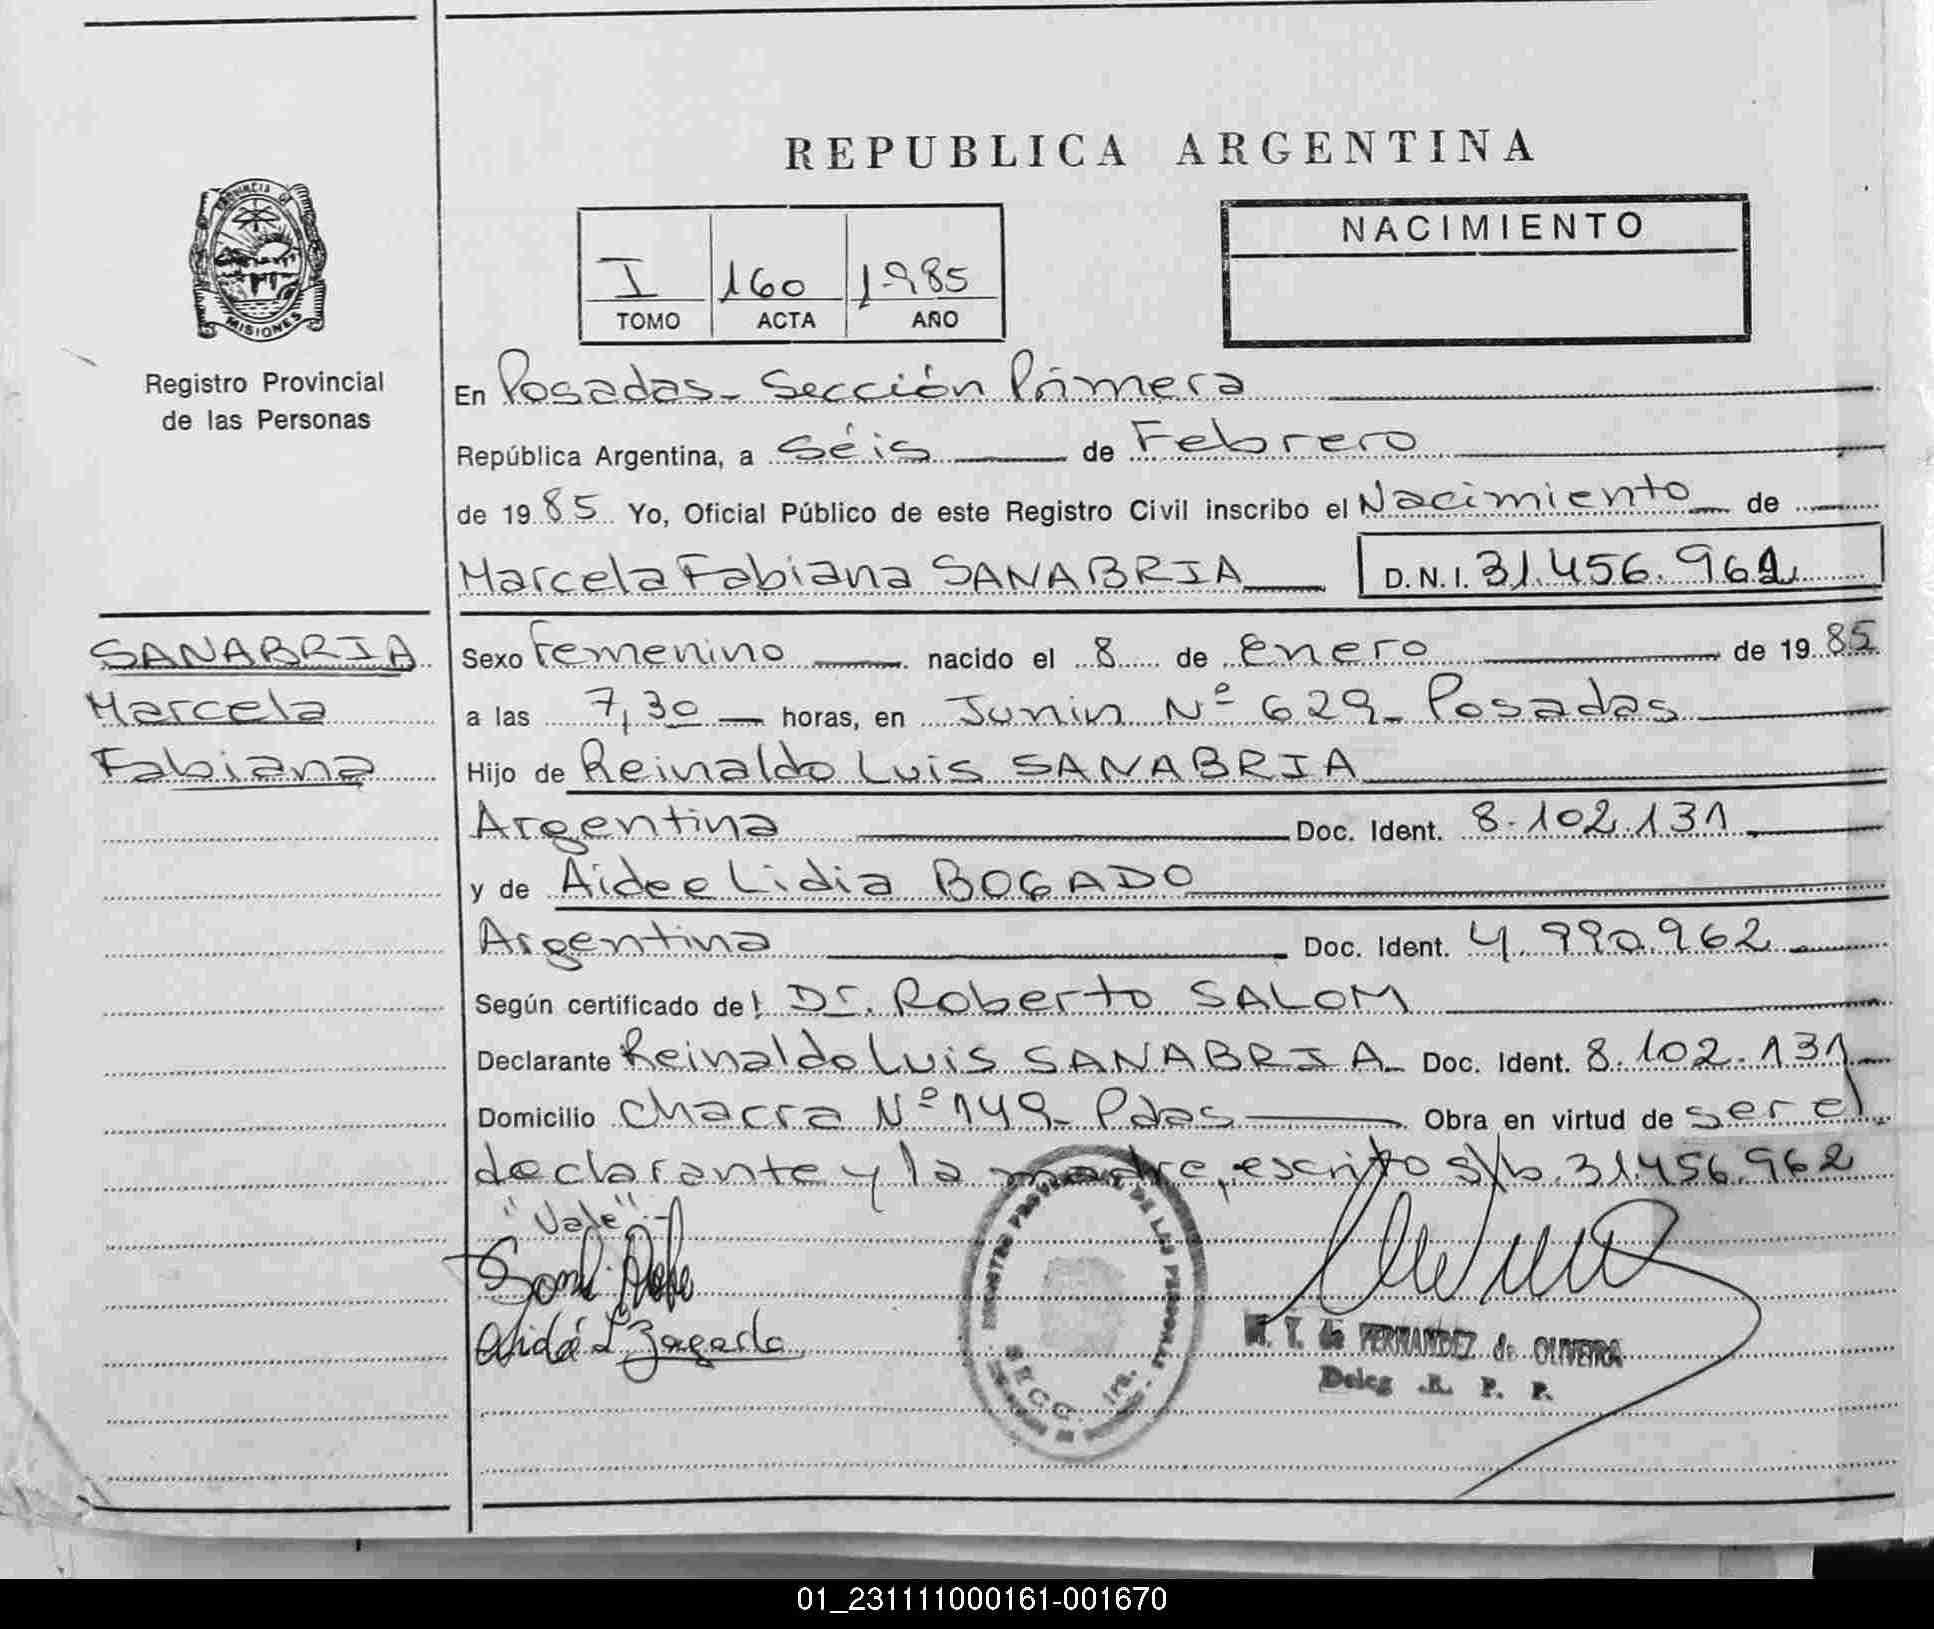 REPUBLICA ARGENTINA
PROVINCIA DE
MISIONES
Registro Provincial
de las Personas
I 160 1985
TOMO ACTA AÑO
NACIMIENTO
En Posadas - Sección Primera
República Argentina, a Séis de Febrero
de 1985 Yo, Oficial Público de este Registro Civil inscribo el Nacimiento de
Marcela Fabiana SANABRIA D.N.I. 31.456.962
SANABRIA
Marcela
Fabiana
Sexo Femenino nacido el 8 de enero de 1985
a las 7,30 horas, en Junin Nº 629 - Posadas
Hijo de Reinaldo Luis SANABRIA
Argentina Doc. Ident. 8.102.131
y de Aidee Lidia BOGADO
Argentina Doc. Ident. 4.990.962
Según certificado de: Dr. Roberto SALOM
Declarante Reinaldo Luis SANABRIA - Doc. Ident. 8.102.131
Domicilio Chacra Nº 149 - Pdas Obra en virtud de ser el
declarante y la madre, escrito s/b. 31.456.962
"Vale".-
REGISTRO PROVINCIAL DE LAS PERSONAS
SECC. 1ra.
M. T. de FERNANDEZ de OLIVEIRA
Deleg .R. P. P.
01_231111000161-001670